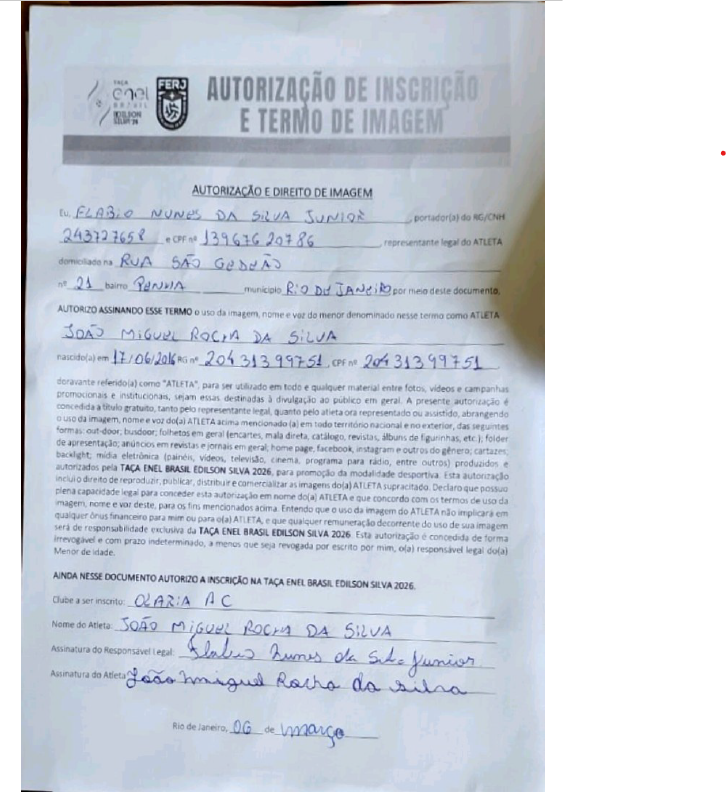 TAÇA
enel
BRASIL
EDILSON
SILVA'26
FERJ
AUTORIZAÇÃO DE INSCRIÇÃO
E TERMO DE IMAGEM
AUTORIZAÇÃO E DIREITO DE IMAGEM
Eu, FLABIO NUNES DA SILVA JUNIOR, portador(a) do RG/CNH
243727658 e CPF nº 13967620786, representante legal do ATLETA
domiciliado na RUA SÃO GEDEÃO
nº 21 bairro PENHA município RIO DE JANEIRO por meio deste documento,
AUTORIZO ASSINANDO ESSE TERMO o uso da imagem, nome e voz do menor denominado nesse termo como ATLETA
JOÃO MIGUEL ROCHA DA SILVA
nascido(a) em 17/06/2016 RG nº 20431399751, CPF nº 20431399751
doravante referido(a) como "ATLETA", para ser utilizado em todo e qualquer material entre fotos, vídeos e campanhas
promocionais e institucionais, sejam essas destinadas à divulgação ao público em geral. A presente autorização é
concedida a título gratuito, tanto pelo representante legal, quanto pelo atleta ora representado ou assistido, abrangendo
o uso da imagem, nome e voz do(a) ATLETA acima mencionado (a) em todo território nacional e no exterior, das seguintes
formas: out-door; busdoor; folhetos em geral (encartes, mala direta, catálogo, revistas, álbuns de figurinhas, etc.); folder
de apresentação; anúncios em revistas e jornais em geral; home page, facebook, instagram e outros do gênero; cartazes;
backlight; mídia eletrônica (painéis, vídeos, televisão, cinema, programa para rádio, entre outros) produzidos e
autorizados pela TAÇA ENEL BRASIL EDILSON SILVA 2026, para promoção da modalidade desportiva. Esta autorização
inclui o direito de reproduzir, publicar, distribuir e comercializar as imagens do(a) ATLETA supracitado. Declaro que possuo
plena capacidade legal para conceder esta autorização em nome do(a) ATLETA e que concordo com os termos de uso da
imagem, nome e voz deste, para os fins mencionados acima. Entendo que o uso da imagem do ATLETA não implicará em
qualquer ônus financeiro para mim ou para o(a) ATLETA, e que qualquer remuneração decorrente do uso de sua imagem
será de responsabilidade exclusiva da TAÇA ENEL BRASIL EDILSON SILVA 2026. Esta autorização é concedida de forma
irrevogável e com prazo indeterminado, a menos que seja revogada por escrito por mim, o(a) responsável legal do(a)
Menor de idade.
AINDA NESSE DOCUMENTO AUTORIZO A INSCRIÇÃO NA TAÇA ENEL BRASIL EDILSON SILVA 2026.
Clube a ser inscrito: OLARIA AC
Nome do Atleta: JOÃO MIGUEL ROCHA DA SILVA
Assinatura do Responsável Legal: Flabio Nunes da Silva Junior
Assinatura do Atleta João miguel Rocha da silva
Rio de Janeiro, 06 de março